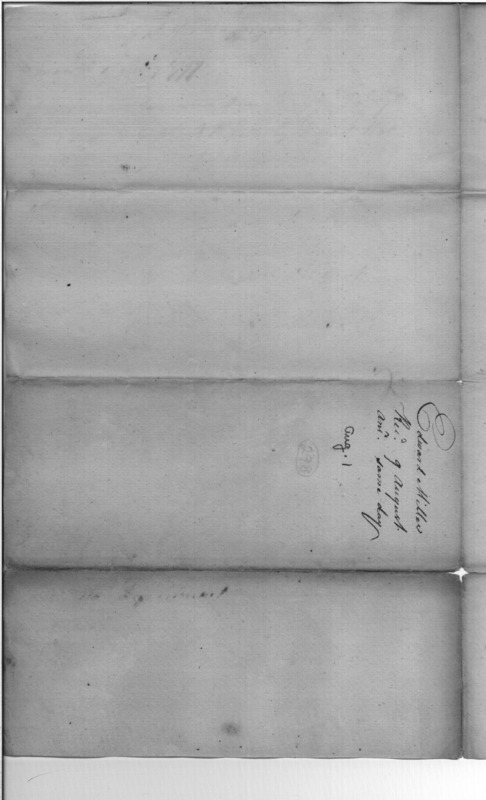 Edward Miller
Rec.d 9 August
Ans.d same day
Aug. 1
298